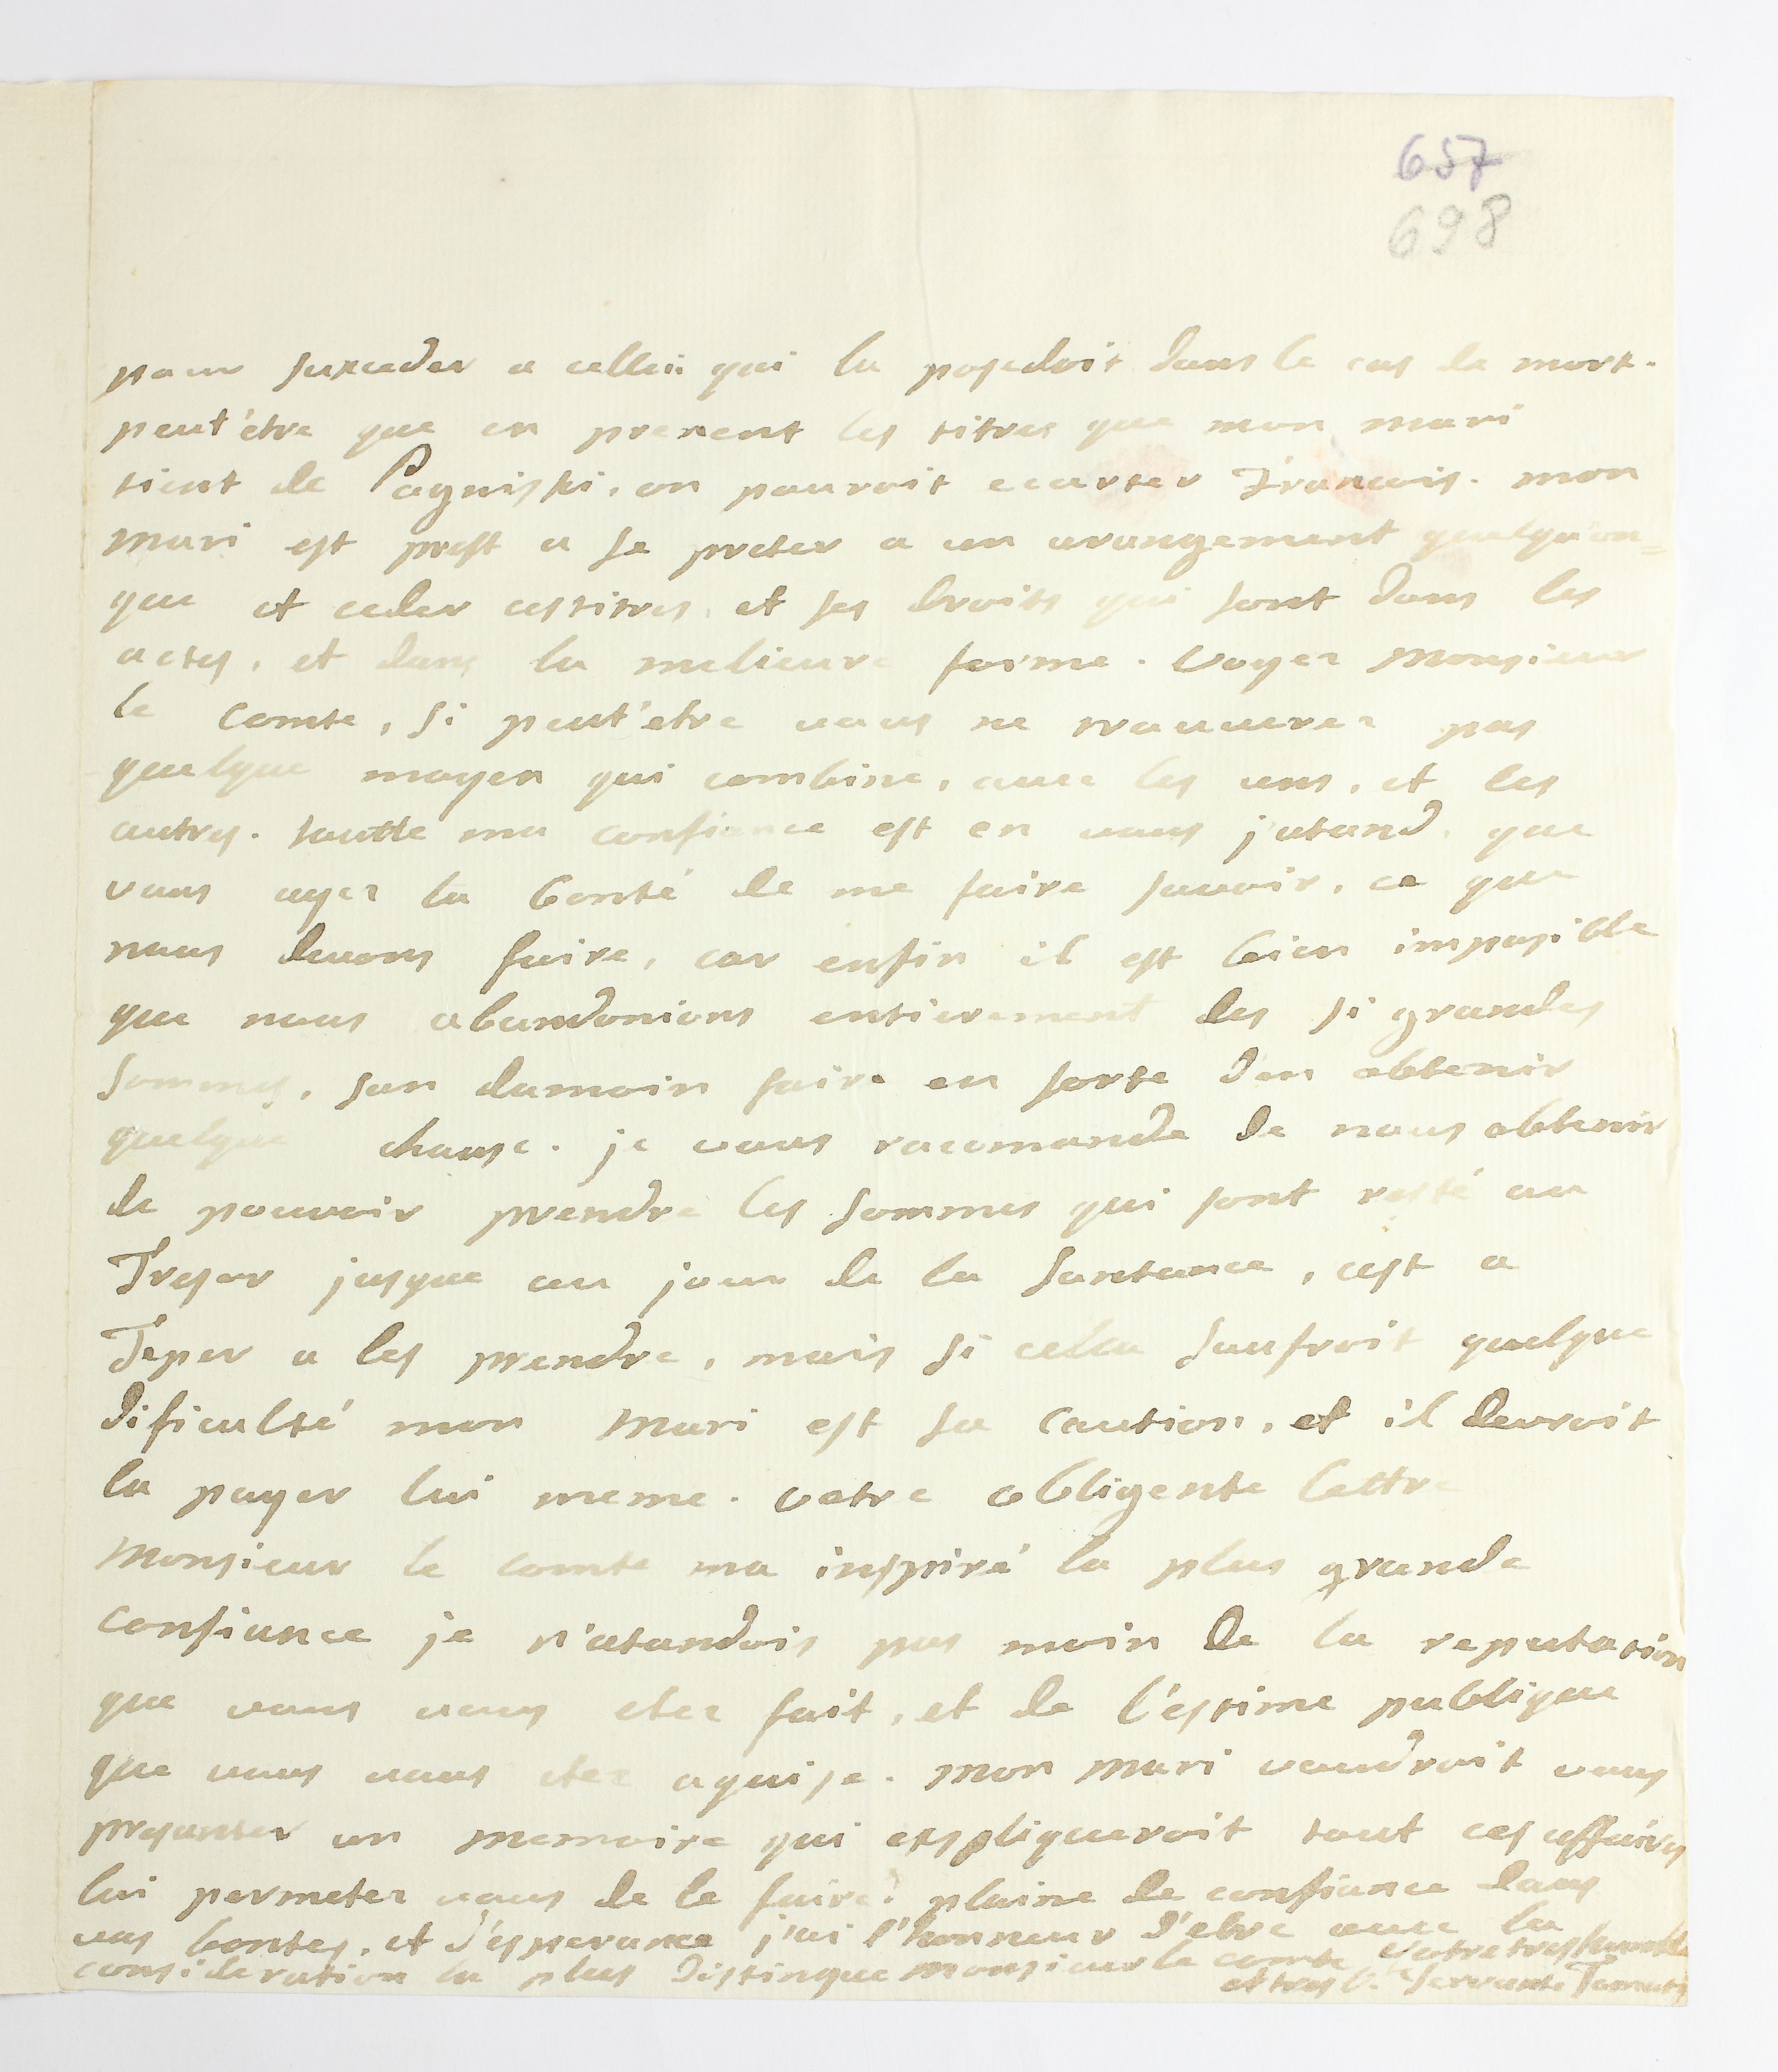 657
698
pour suxceder a celleii qui la posedoit dans le cas de mort.
peut'étre que en prenent les titres que mon mari
tient de Pagniski, on pouroit ecarter Francois. mon
mari est prest a se preter a un arangement quelqu'on=
que et ceder cestitres, et ses droits qui sont dans les
actes, et dans la melieure forme. Voyez Monsieur
le Comte, si peut'etre vous ne trouverez pas
quelque moyen qui combine, avec les uns, et les
autres. toutte ma confiance est en vous j'atand, que
vous ayez la bonté de me faire savoir, ce que
nous devons faire, car enfin il est bien imposible
que nous abandonions entierement des si grandes
sommes, san dumoin faire en sorte d'en obtenir
quelque chouse. je vous racomande de nous obtenir
de pouvoir prendre les sommes qui sont resté au
Tresor jusque au jour de la santance, cest a
Teper a les prendre, mais si cella soufroit quelque
dificulté mon Mari est sa Caution, et il devroit
la payer lui meme. votre obligente lettre
Monsieur le comte ma inspiré la plus grande
confiance je n'atandois pas moin de la reputation
que vous vous etez fait, et de l'estime publique
que vous vous etez aquise. Mon Mari voudroit vous
presanter un memoire qui expliqueroit tout ces affaires
lui permetez vous de le faire? plaine de confiance dans
vos bontes, et d'esperance j'ai l'honneur d'etre avec la
consideration la plus distingue Monsieur le comte Votre tres humble
et tres o. servante